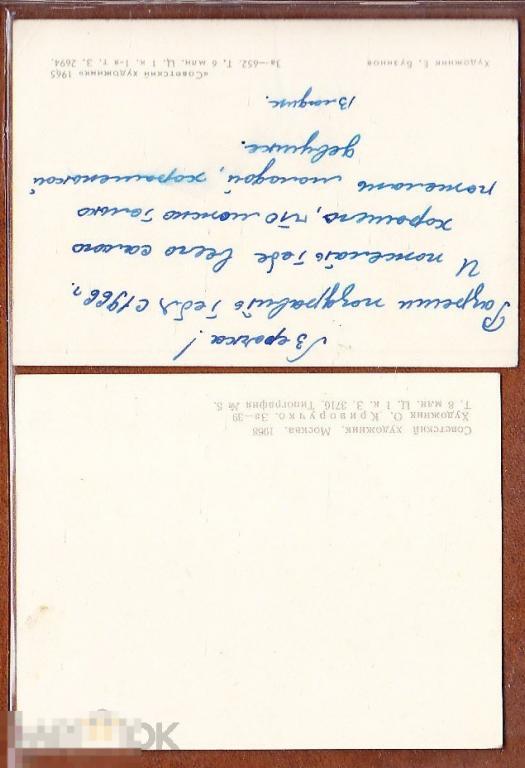 Верочка!
Разреши поздравить тебя с 1966 г.
И пожелать тебе всего самого
хорошего, что можно только
пожелать молодой, хорошенькой
девушке.
Владик.
Художник Е. Бузинов
«Советский художник» 1965
За—652. Т. 6 млн. Ц. 1 к. 1-я т. З. 2694.
Советский художник. Москва. 1968
Художник О. Криворучко. За—39
Т. 8 млн. Ц. 1 к. З. 3716. Типография № 5.